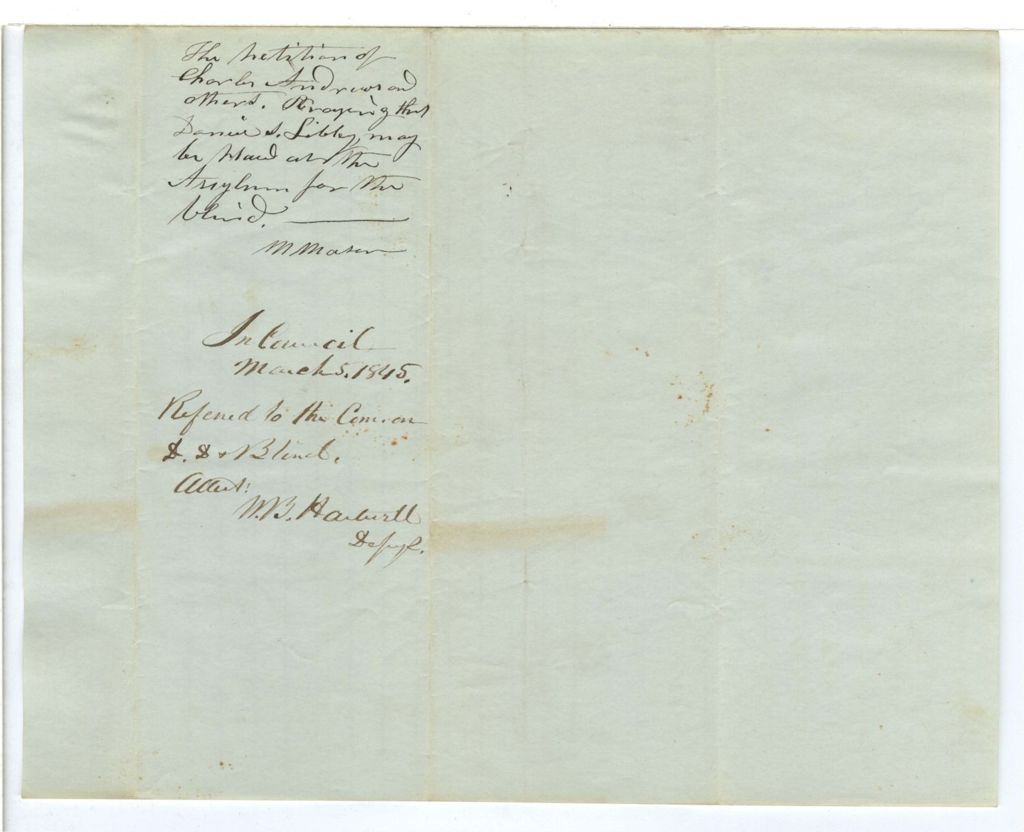 The Petition of
Charles Andrews and
others. Praying that
Daniel S. Libby, may
be placed at the
Asylum for the
blind.
M Mason
In Council
March 5, 1845.
Referred to the Com. on
D. D & Blind.
Attest:
W. B. Hartwell